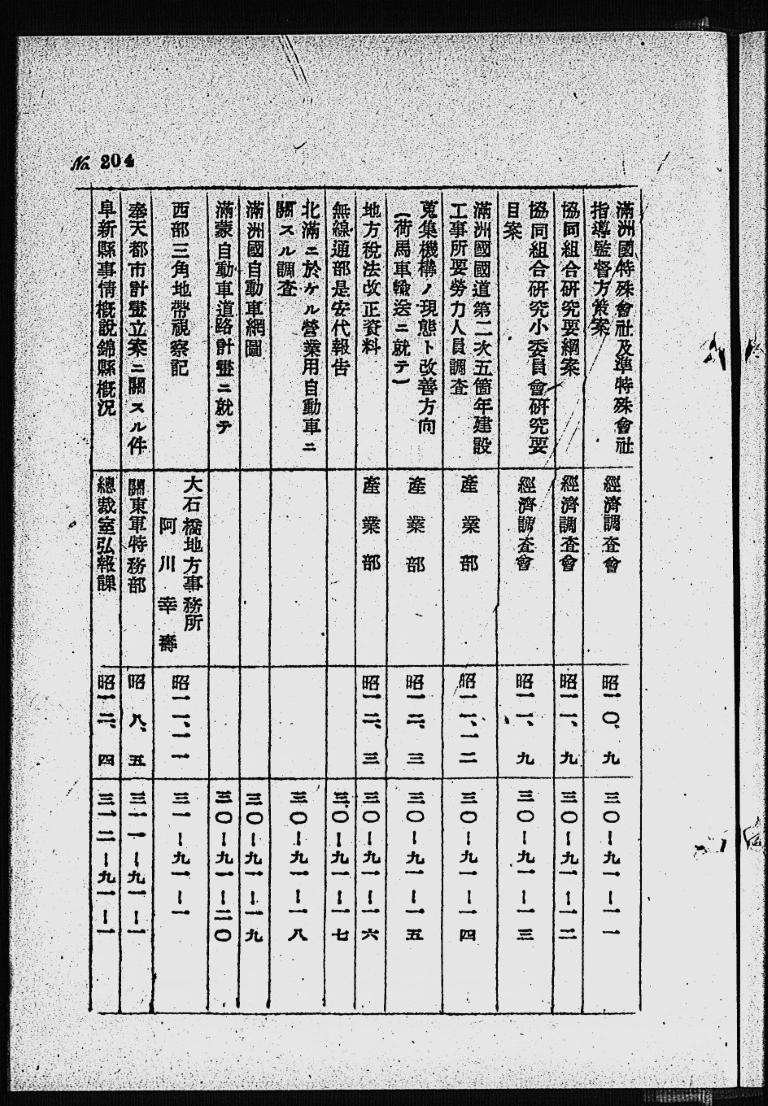 No. 204
滿洲國特殊會社及準特殊會社
指導監督方策案
經濟調査會
昭一〇、九
三〇—九一—一一
協同組合研究要綱案
經濟調査會
昭一一、九
三〇—九一—一二
協同組合研究小委員會研究要
目案
經濟調査會
昭一一、九
三〇—九一—一三
滿洲國國道第二次五箇年建設
工事所要勞力人員調査
產業部
昭一一、一二
三〇—九一—一四
蒐集機構ノ現態ト改善方向
(荷馬車輸送ニ就テ)
產業部
昭一二、三
三〇—九一—一五
地方稅法改正資料
產業部
昭一二、三
三〇—九一—一六
無線通部是安代報告
三〇—九一—一七
北滿ニ於ケル營業用自動車ニ
關スル調査
三〇—九一—一八
滿洲國自動車網圖
三〇—九一—一九
滿蒙自動車道路計畫ニ就テ
三〇—九一—二〇
西部三角地帶視察記
大石橋地方事務所
阿川幸壽
昭一一、一一
三一—九一—一
奉天都市計畫立案ニ關スル件
關東軍特務部
昭八、五
三一一—九一—一
阜新縣事情槪說錦縣槪況
總裁室弘報課
昭一二、四
三一二—九一—一